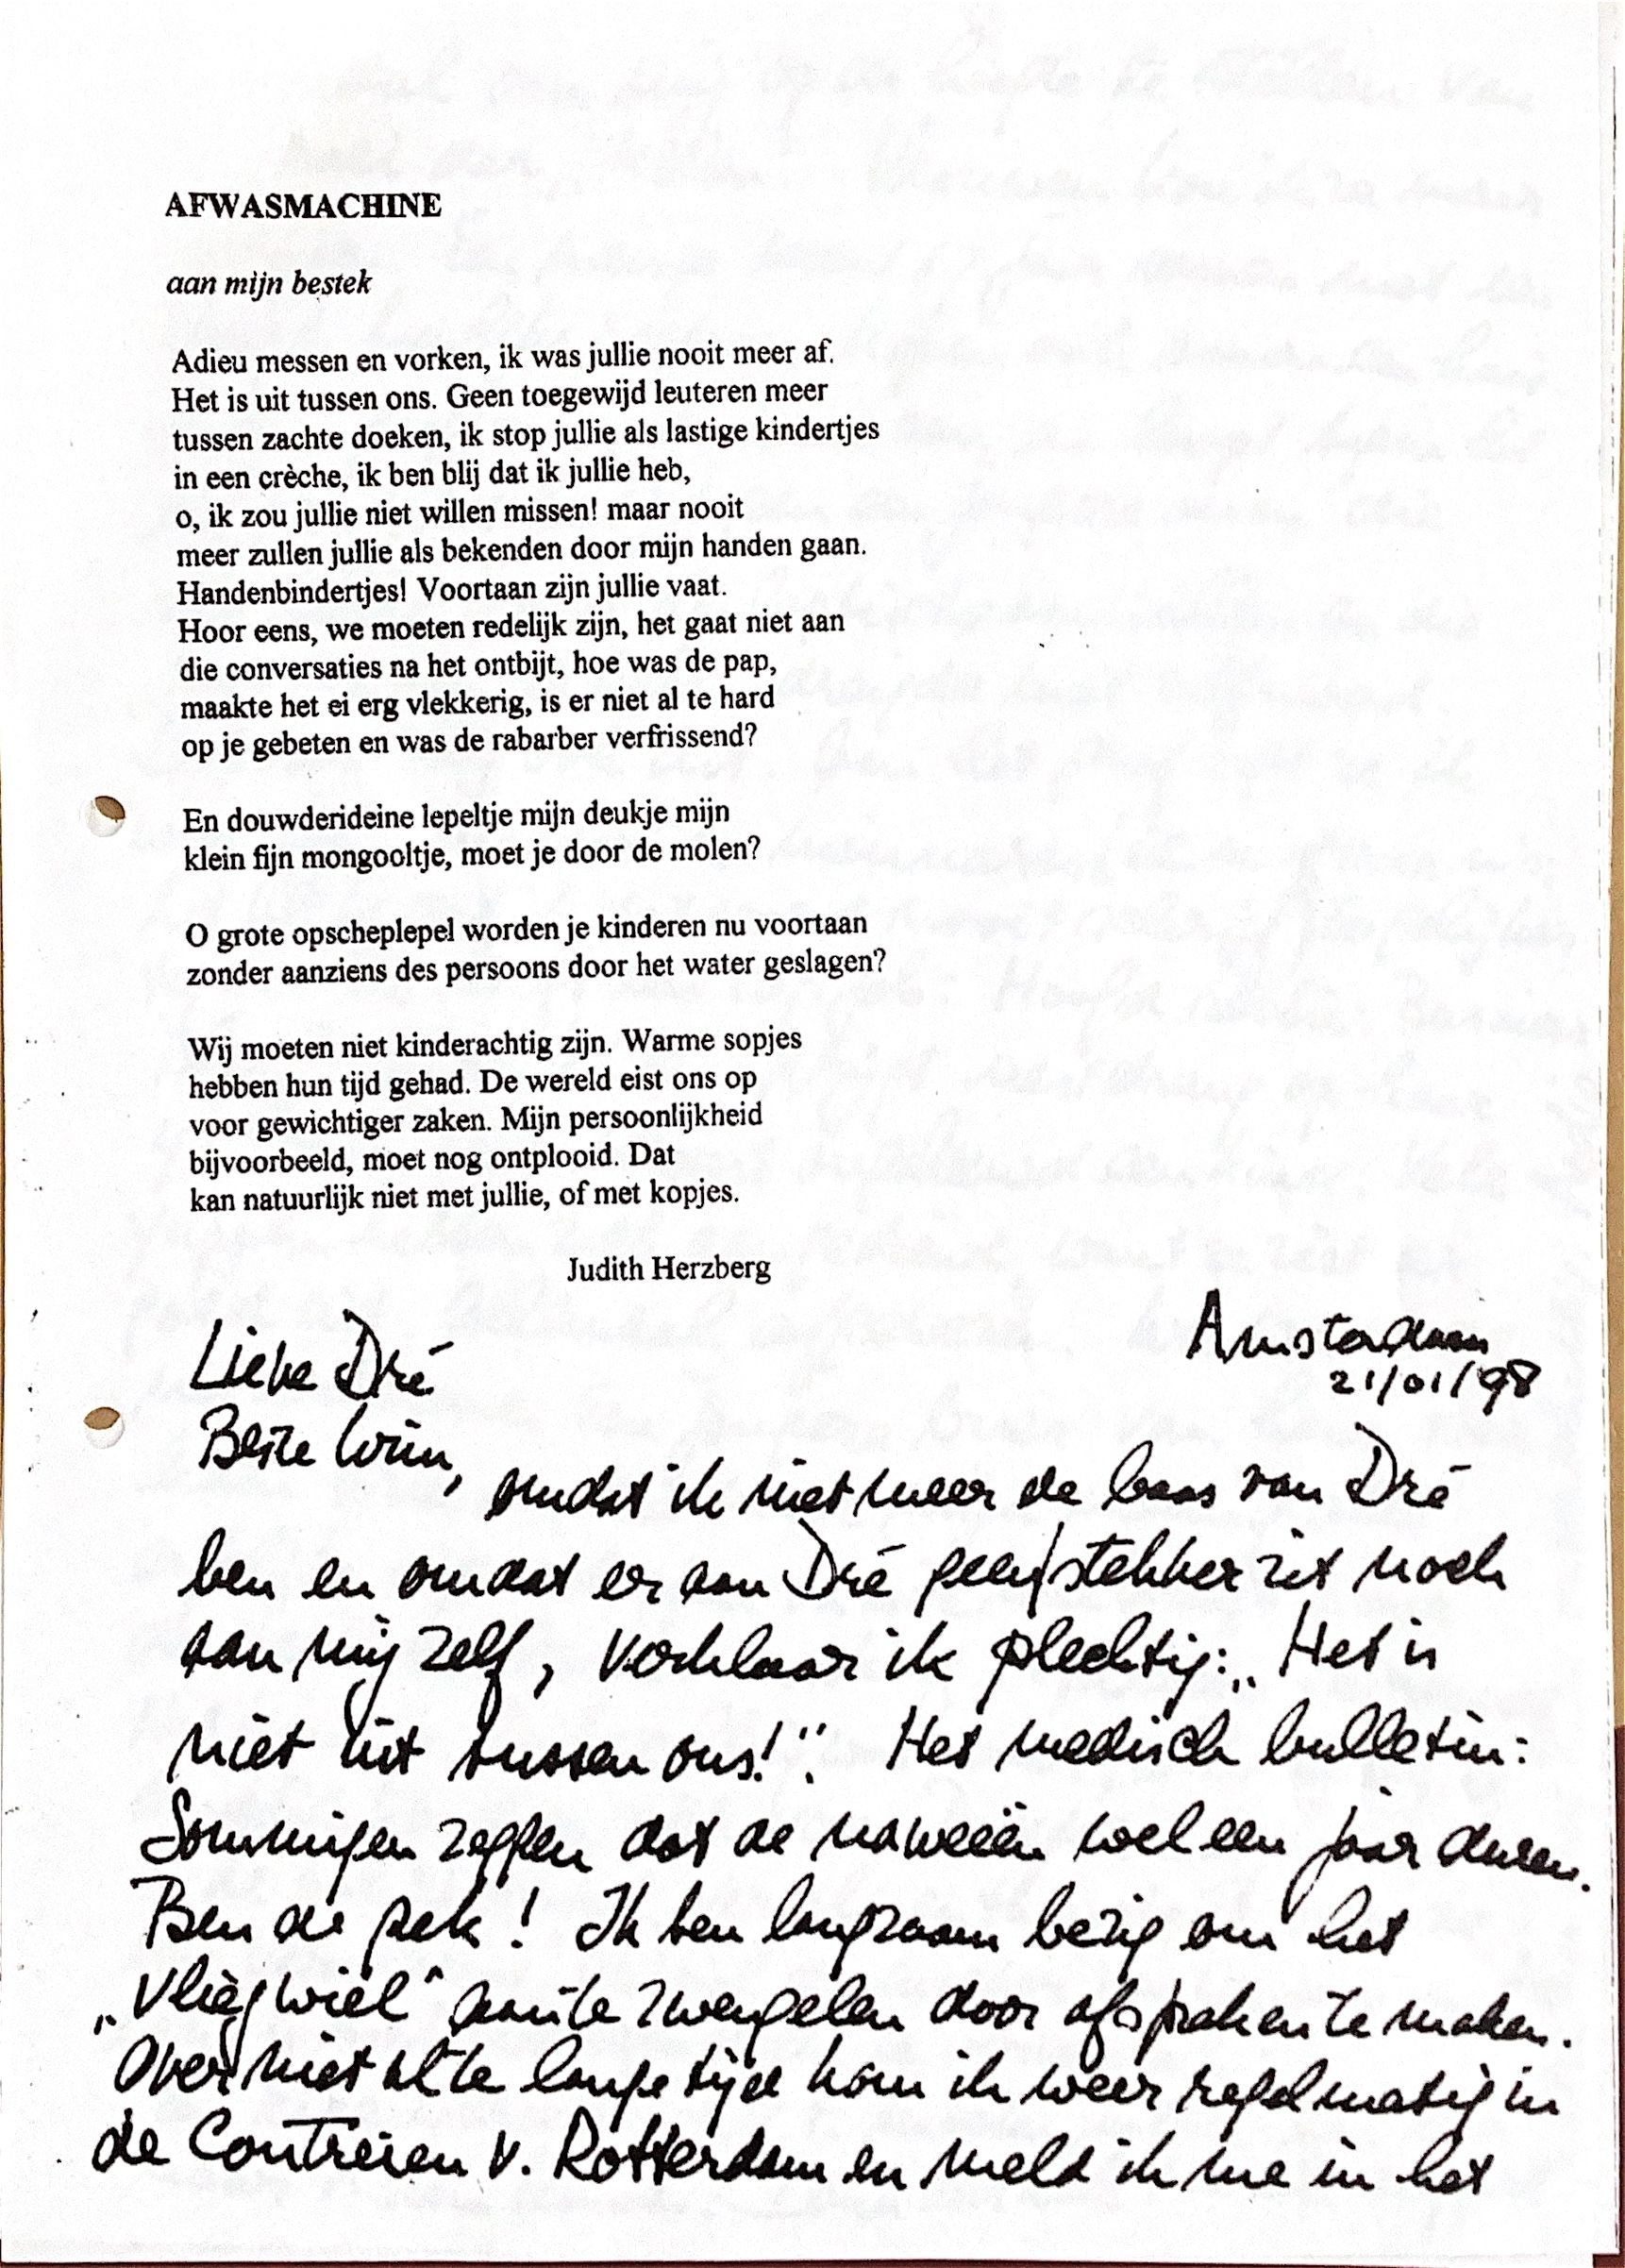 AFWASMACHINE
aan mijn bestek
Adieu messen en vorken, ik was jullie nooit meer af.
Het is uit tussen ons. Geen toegewijd leuteren meer
tussen zachte doeken, ik stop jullie als lastige kindertjes
in een crèche, ik ben blij dat ik jullie heb,
o, ik zou jullie niet willen missen! maar nooit
meer zullen jullie als bekenden door mijn handen gaan.
Handenbindertjes! Voortaan zijn jullie vaat.
Hoor eens, we moeten redelijk zijn, het gaat niet aan
die conversaties na het ontbijt, hoe was de pap,
maakte het ei erg vlekkerig, is er niet al te hard
op je gebeten en was de rabarber verfrissend?
En douwderideine lepeltje mijn deukje mijn
klein fijn mongooltje, moet je door de molen?
O grote opscheplepel worden je kinderen nu voortaan
zonder aanziens des persoons door het water geslagen?
Wij moeten niet kinderachtig zijn. Warme sopjes
hebben hun tijd gehad. De wereld eist ons op
voor gewichtiger zaken. Mijn persoonlijkheid
bijvoorbeeld, moet nog ontplooid. Dat
kan natuurlijk niet met jullie, of met kopjes.
Judith Herzberg
Amsterdam
21/01/98
Lieve Dré
Beste Wim,
omdat ik niet meer de baas van Dré
ben en omdat er aan Dré geen stekker zit noch
aan mij zelf, verklaar ik plechtig: „Het is
niet uit tussen ons!". Het medisch bulletin:
Sommigen zeggen dat de naweeën wel een jaar duren.
Ben de gek! Ik ben langzaam bezig om het
„Vliegwiel" aan te zwengelen door afspraken te maken.
Over niet al te lange tijd kom ik weer regelmatig in
de Contreien v. Rotterdam en meld ik me in het